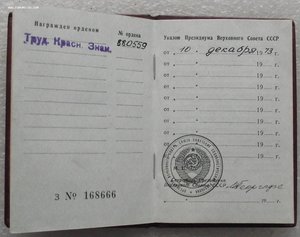 Награжден орденом
№ ордена
Труд. Красн. Знам.
880559
З № 168666
Указом Президиума Верховного Совета СССР
от 10 декабря 1973 г.
от 19 г.
от 19 г.
от 19 г.
от 19 г.
от 19 г.
от 19 г.
М. П.
Секретарь Президиума
Верховного Совета СССР
19 г.